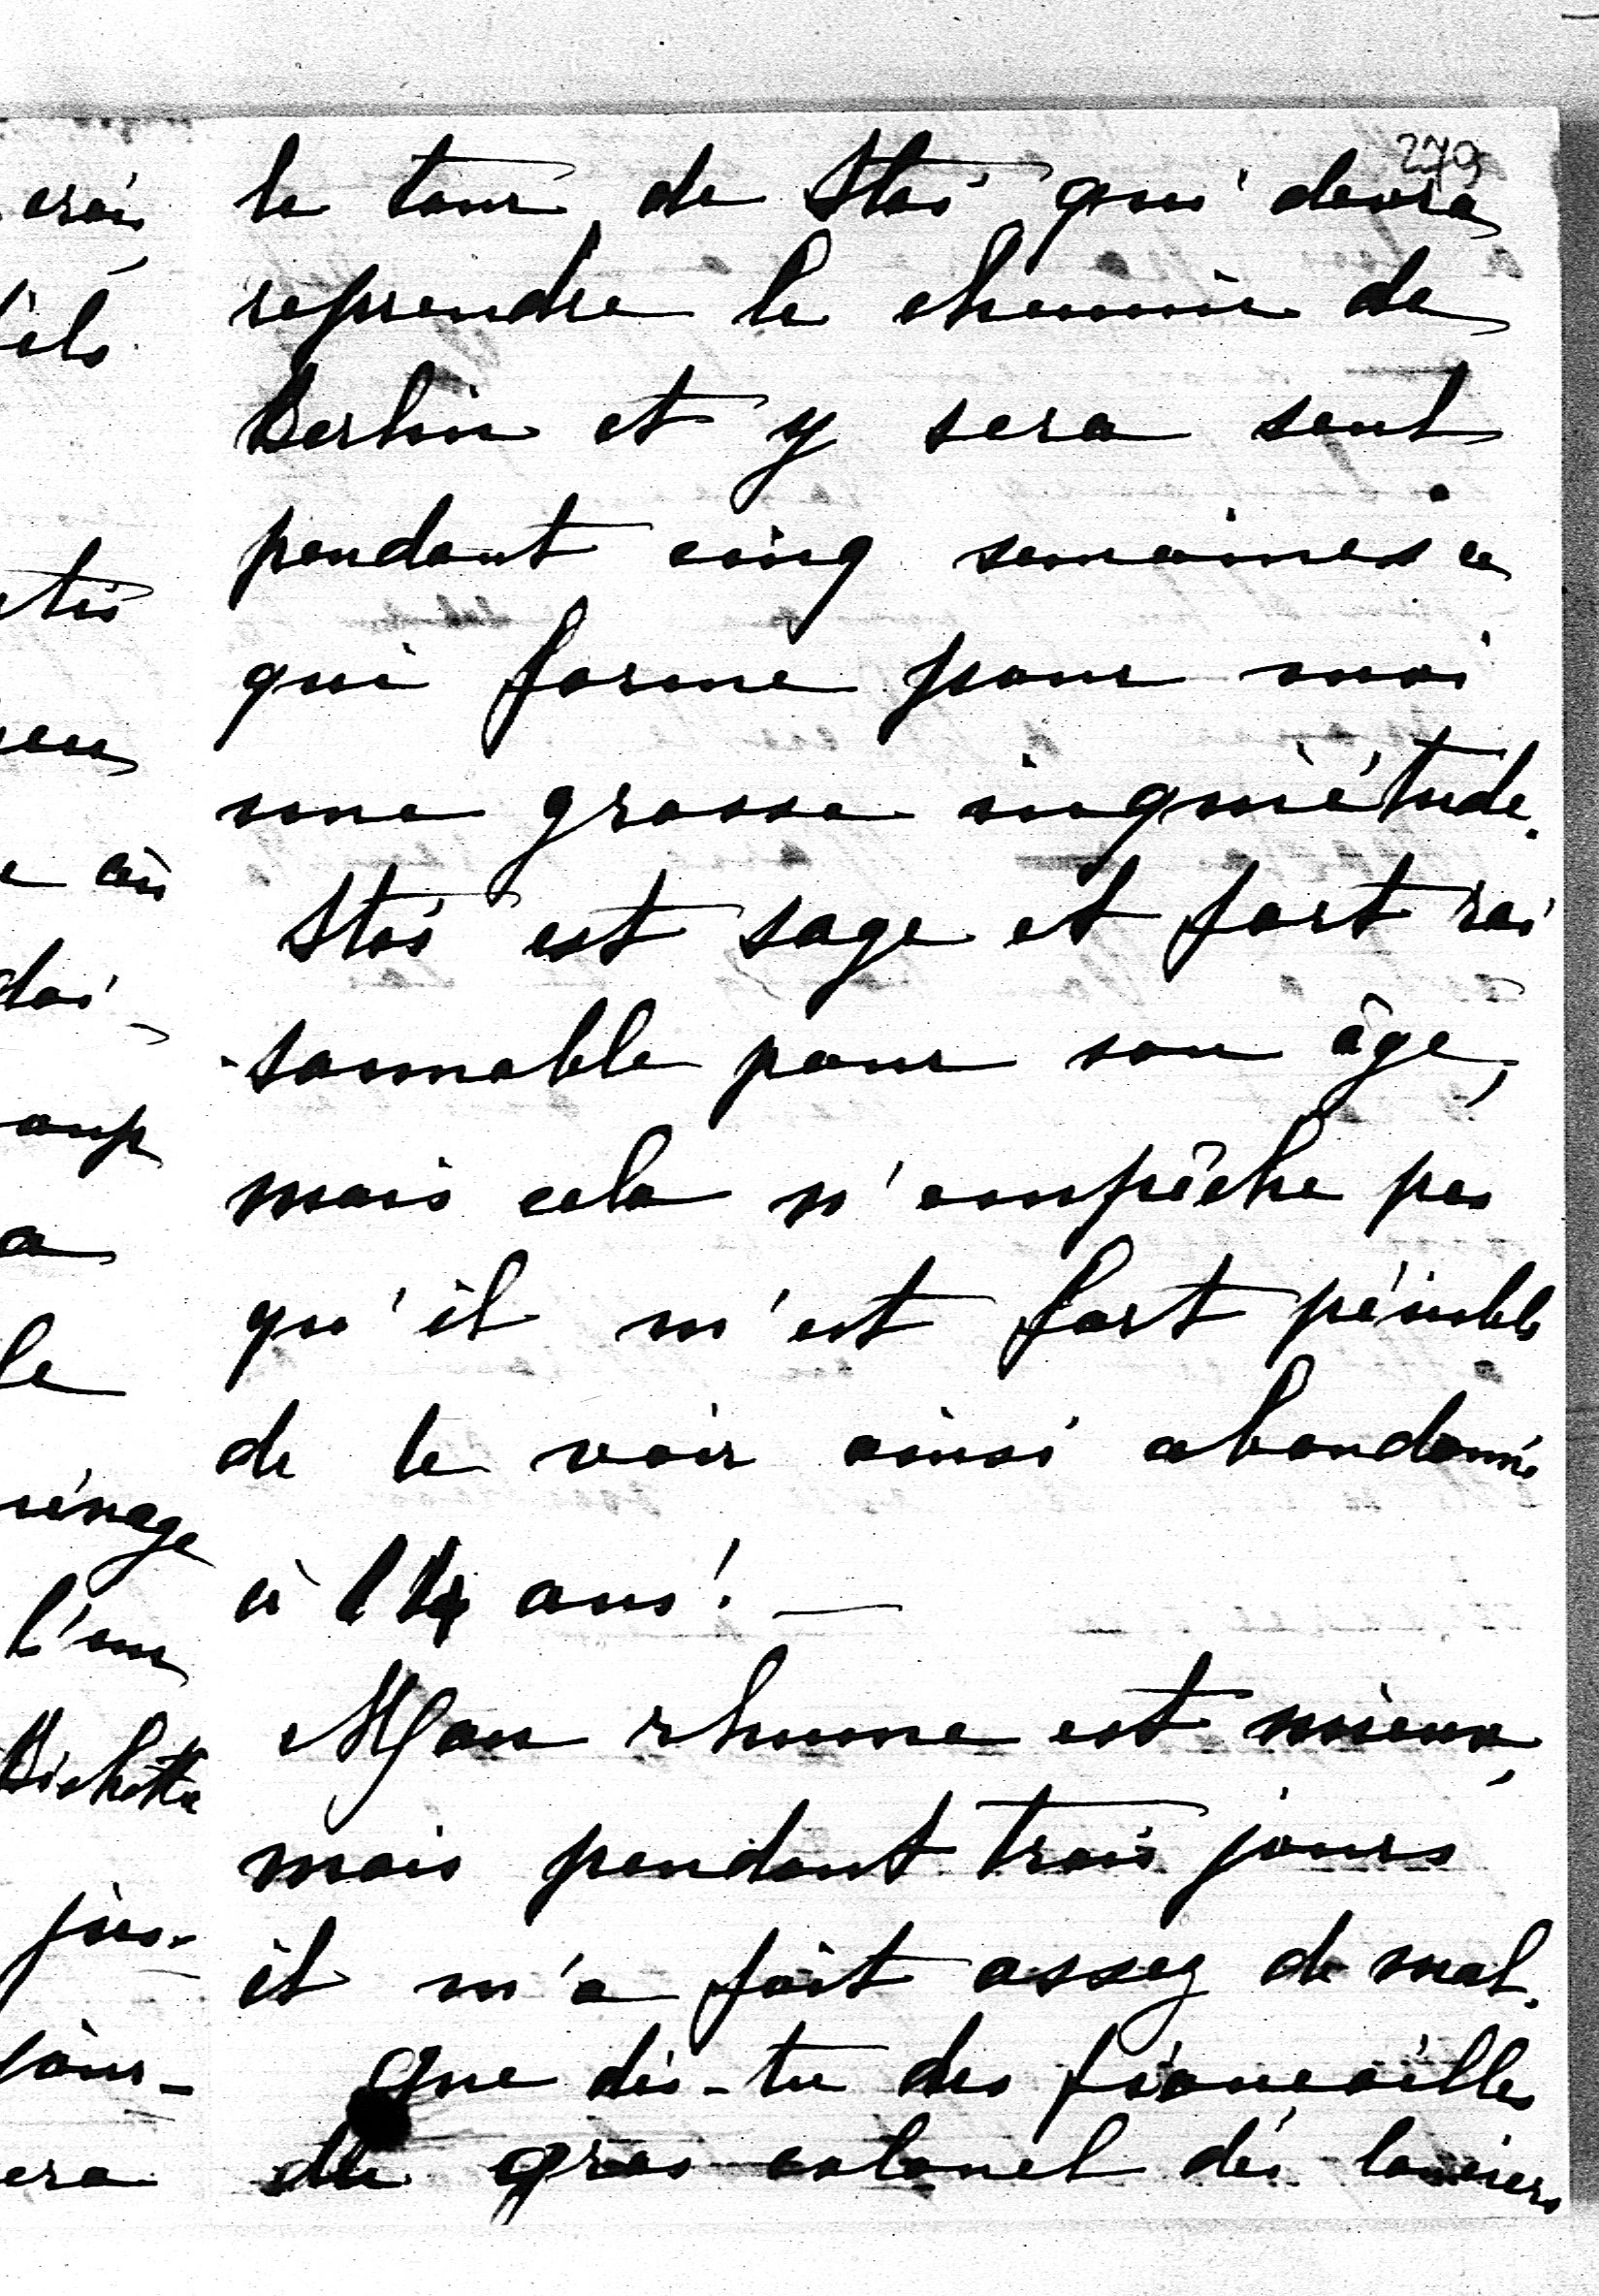 279
le tour de Stas qui devra
reprendre le chemin de
Berlin et y sera seul
pendant cinq semaines ce
qui forme pour moi
une grosse inquiétude.
Stas est sage et fort rai
-sonnable pour son âge,
mais cela n'empêche pas
qu'il m'est fort pénible
de le voir ainsi abandonné
à 14 ans! —
Mon rhume est mieux,
mais pendant trois jours
il m'a fait assez de mal.
Que dis-tu des fiançailles
du gros colonel des lanciers
tis
a
le
l'on
Bichette
jus-
jour-
era